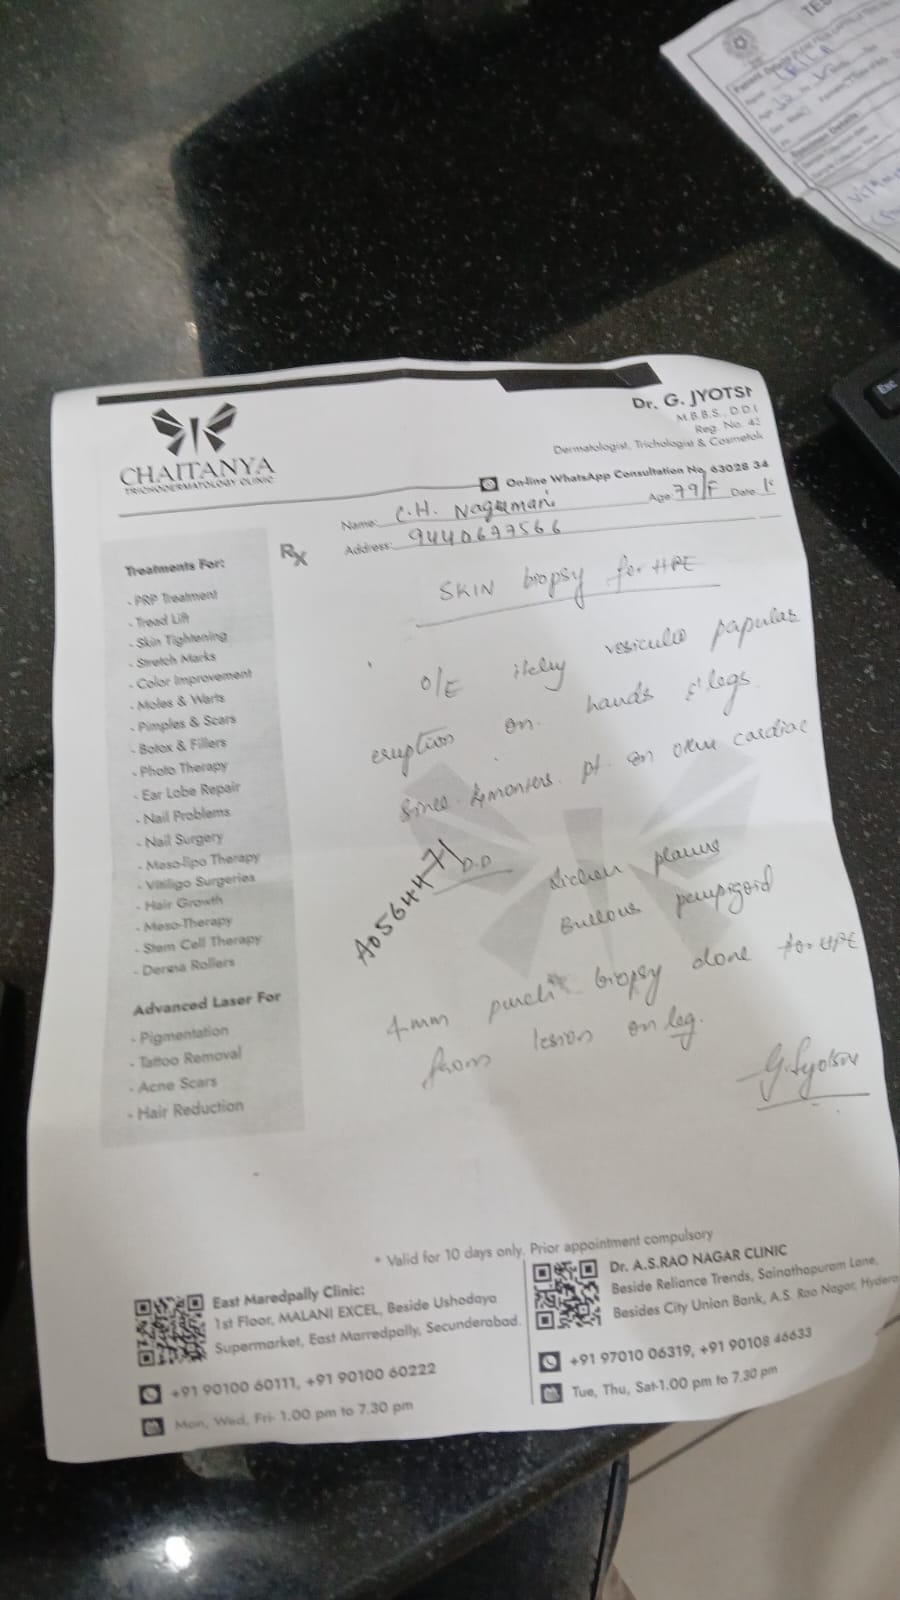 TES
Dr. G. JYOTS
M.B.B.S., D.D.
Reg. No. 4
Dermatologist, Trichologist & Cosmetol
CHAITANYA
TRICHODERMATOLOGY CLINIC
On-line WhatsApp Consultation No. 63028 34
Name: C.H. Nagamani Age: 79/F Date
Address: 9440697566
Rx
SKIN biopsy for HPE
O/E itchy vesiculo papular
eruption on hands & legs
since 4 months. pt. on cardiac
A0564471
D.D Lichen planus
Bullous pempigoid
4mm punch biopsy done for HPE
from lesion on leg.
G. Jyotsn
Treatments For:
- PRP Treatment
- Tread Lift
- Skin Tightening
- Stretch Marks
- Color Improvement
- Moles & Warts
- Pimples & Scars
- Botox & Fillers
- Photo Therapy
- Ear Lobe Repair
- Nail Problems
- Nail Surgery
- Meso-lipo Therapy
- Vitiligo Surgeries
- Hair Growth
- Meso-Therapy
- Stem Cell Therapy
- Derma Rollers
Advanced Laser For
- Pigmentation
- Tattoo Removal
- Acne Scars
- Hair Reduction
* Valid for 10 days only. Prior appointment compulsory
East Maredpally Clinic:
1st Floor, MALANI EXCEL, Beside Ushodaya
Supermarket, East Marredpally, Secunderabad.
+91 90100 60111, +91 90100 60222
Mon, Wed, Fri- 1.00 pm to 7.30 pm
Dr. A.S.RAO NAGAR CLINIC
Beside Reliance Trends, Sainathapuram Lane,
Besides City Union Bank, A.S. Rao Nagar, Hydera
+91 97010 06319, +91 90108 46633
Tue, Thu, Sat-1.00 pm to 7.30 pm
Esc